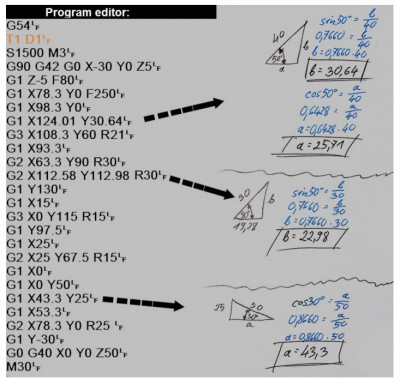 Program editor:
G54LF
T1 D1LF
S1500 M3LF
G90 G42 G0 X-30 Y0 Z5LF
G1 Z-5 F80LF
G1 X78.3 Y0 F250LF
G1 X98.3 Y0LF
G1 X124.01 Y30.64LF
G3 X108.3 Y60 R21LF
G1 X93.3LF
G2 X63.3 Y90 R30LF
G2 X112.58 Y112.98 R30LF
G1 Y130LF
G1 X15LF
G3 X0 Y115 R15LF
G1 Y97.5LF
G1 X25LF
G2 X25 Y67.5 R15LF
G1 X0LF
G1 X0 Y50LF
G1 X43.3 Y25LF
G1 X53.3LF
G2 X78.3 Y0 R25 LF
G1 Y-30LF
G0 G40 X0 Y0 Z50LF
M30LF
40
50°
a
b
sin50° = b/40
0,7660 = b/40
b = 0,7660 · 40
b = 30,64
cos50° = a/40
0,6428 = a/40
a = 0,6428 · 40
a = 25,71
30
50°
b
19,28
sin50° = b/30
0,7660 = b/30
b = 0,7660 · 30
b = 22,98
25
50
30°
a
cos30° = a/50
0,8660 = a/50
a = 0,8660 · 50
a = 43,3